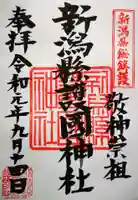 新潟県総鎮護
敬神崇祖
新潟縣護國神社
奉拝
令和元年九月十四日